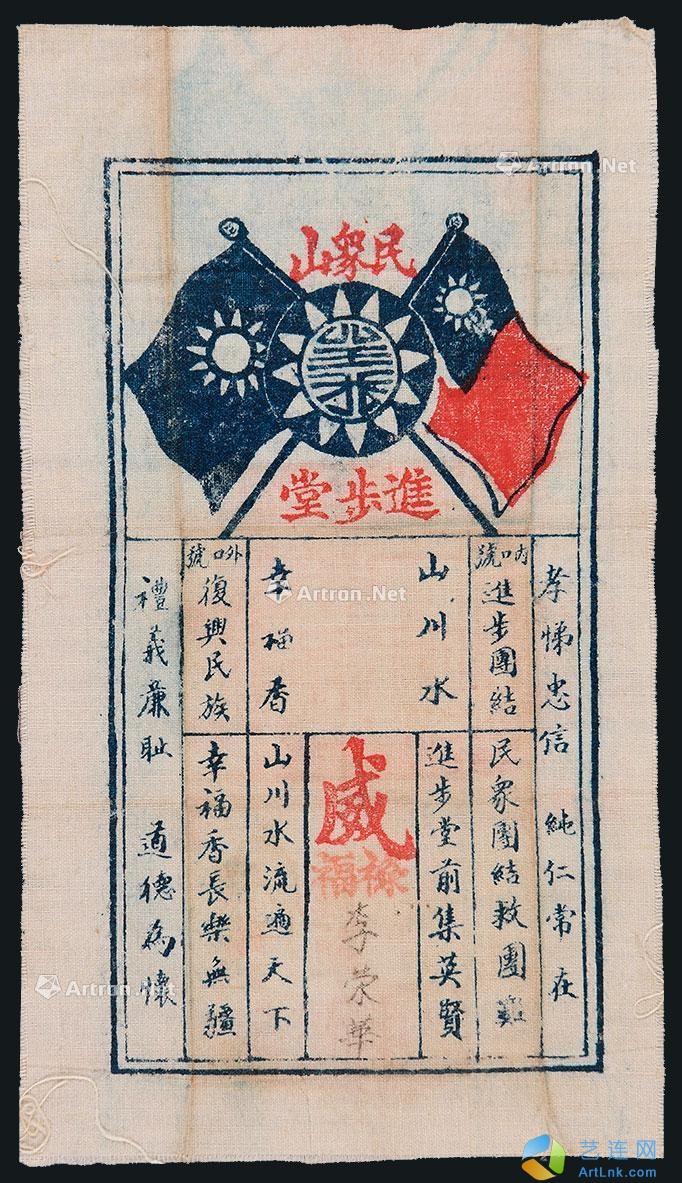 Artron.Net
民衆山
進步堂
孝悌忠信 純仁常在
内口號
進步團結
民衆團結救國難
山川水
進步堂前集英賢
威
祿福
李荣華
幸福香
山川水流遍天下
外口號
復興民族
幸福香長樂無疆
禮義廉耻 道德為懷
Artron.Net
Artron.Net
Artron.Net
艺连网
ArtLnk.com